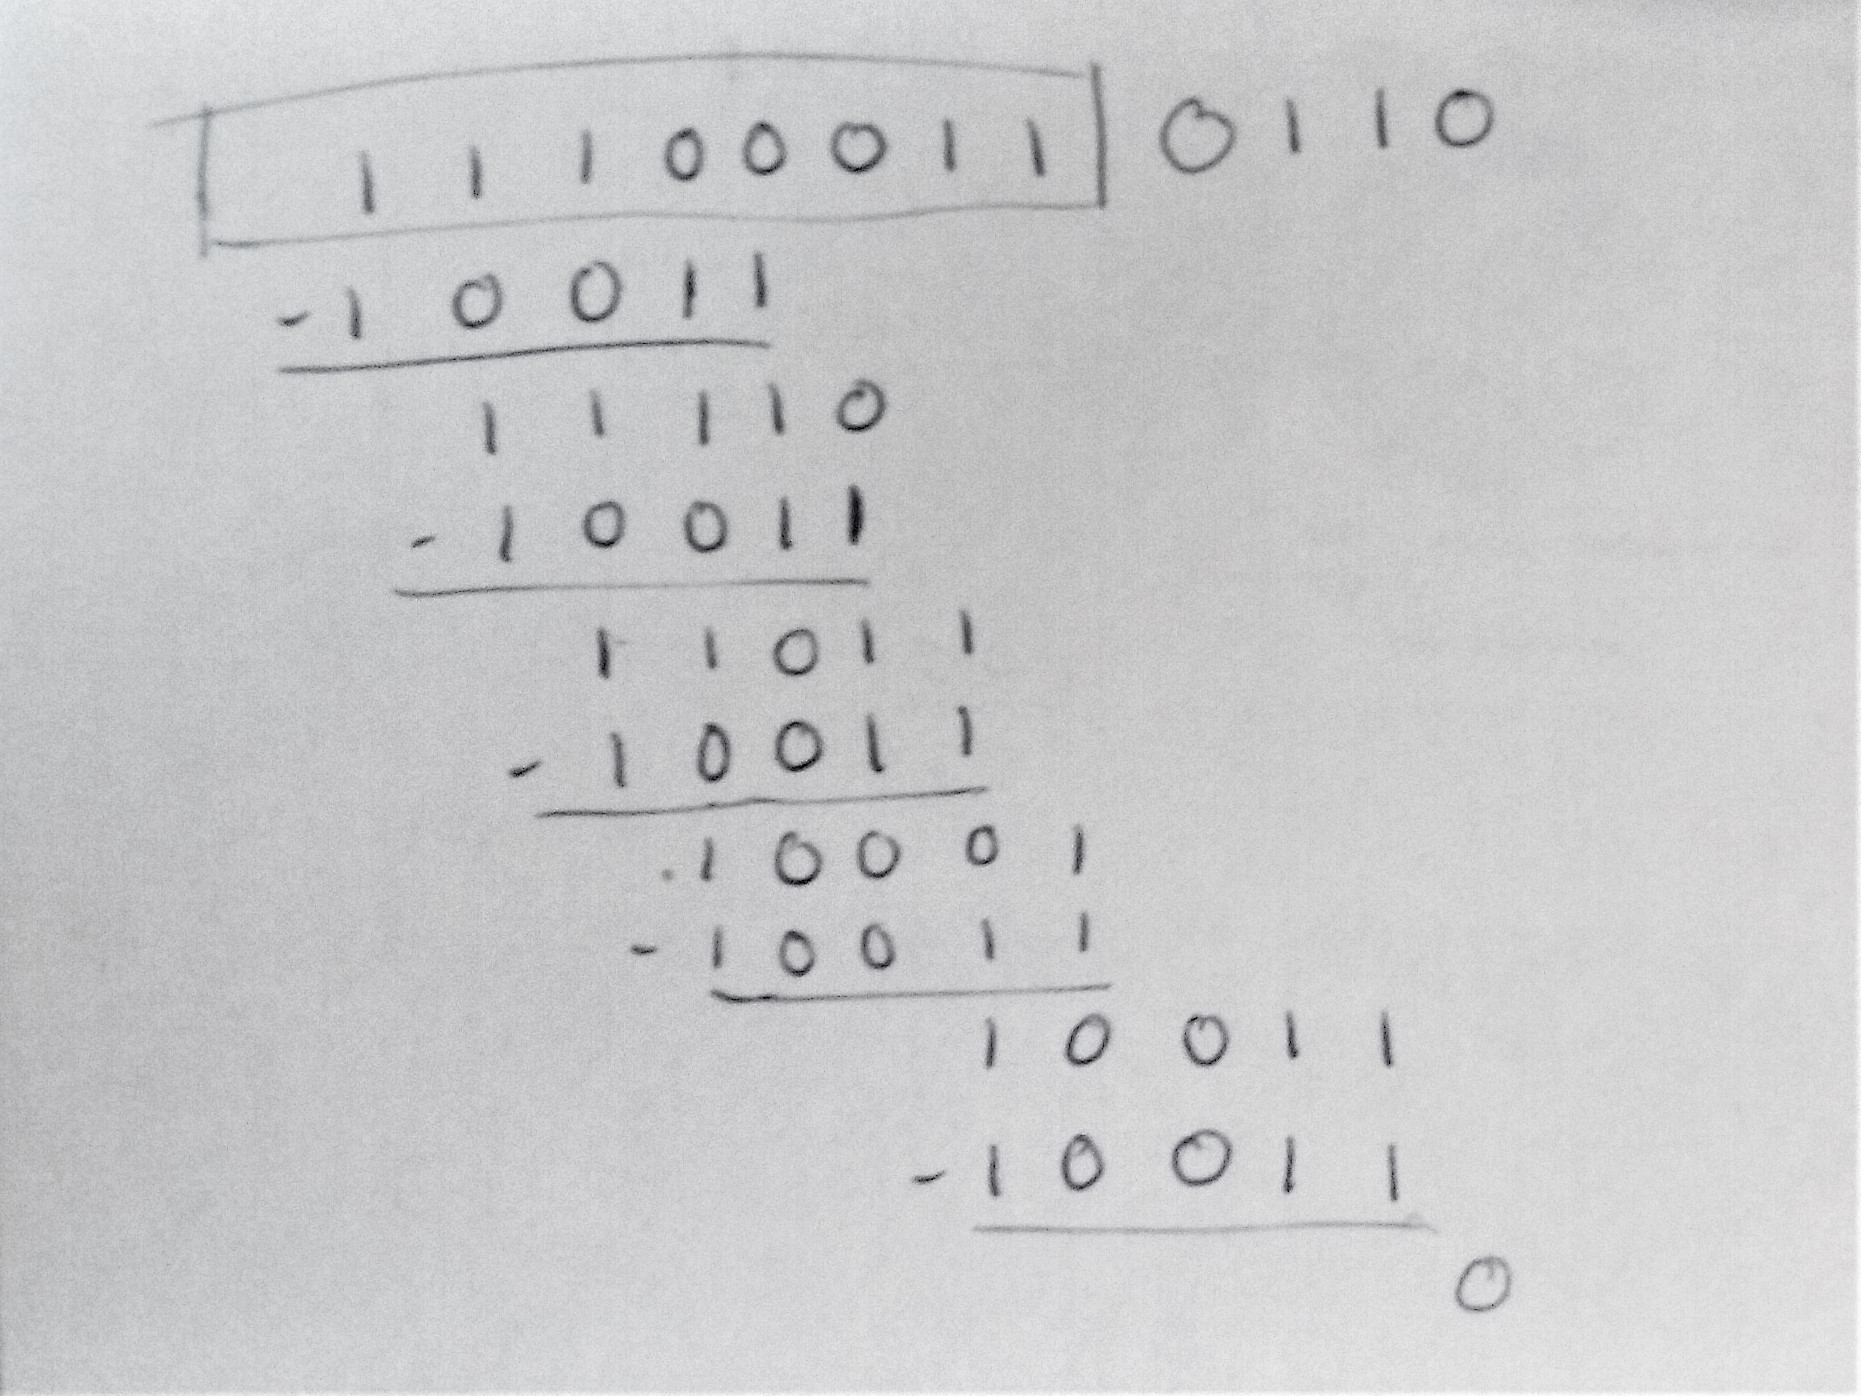 1 1 1 0 0 0 1 1 0 1 1 0
- 1 0 0 1 1
1 1 1 1 0
- 1 0 0 1 1
1 1 0 1 1
- 1 0 0 1 1
. 1 0 0 0 1
- 1 0 0 1 1
1 0 0 1 1
- 1 0 0 1 1
0